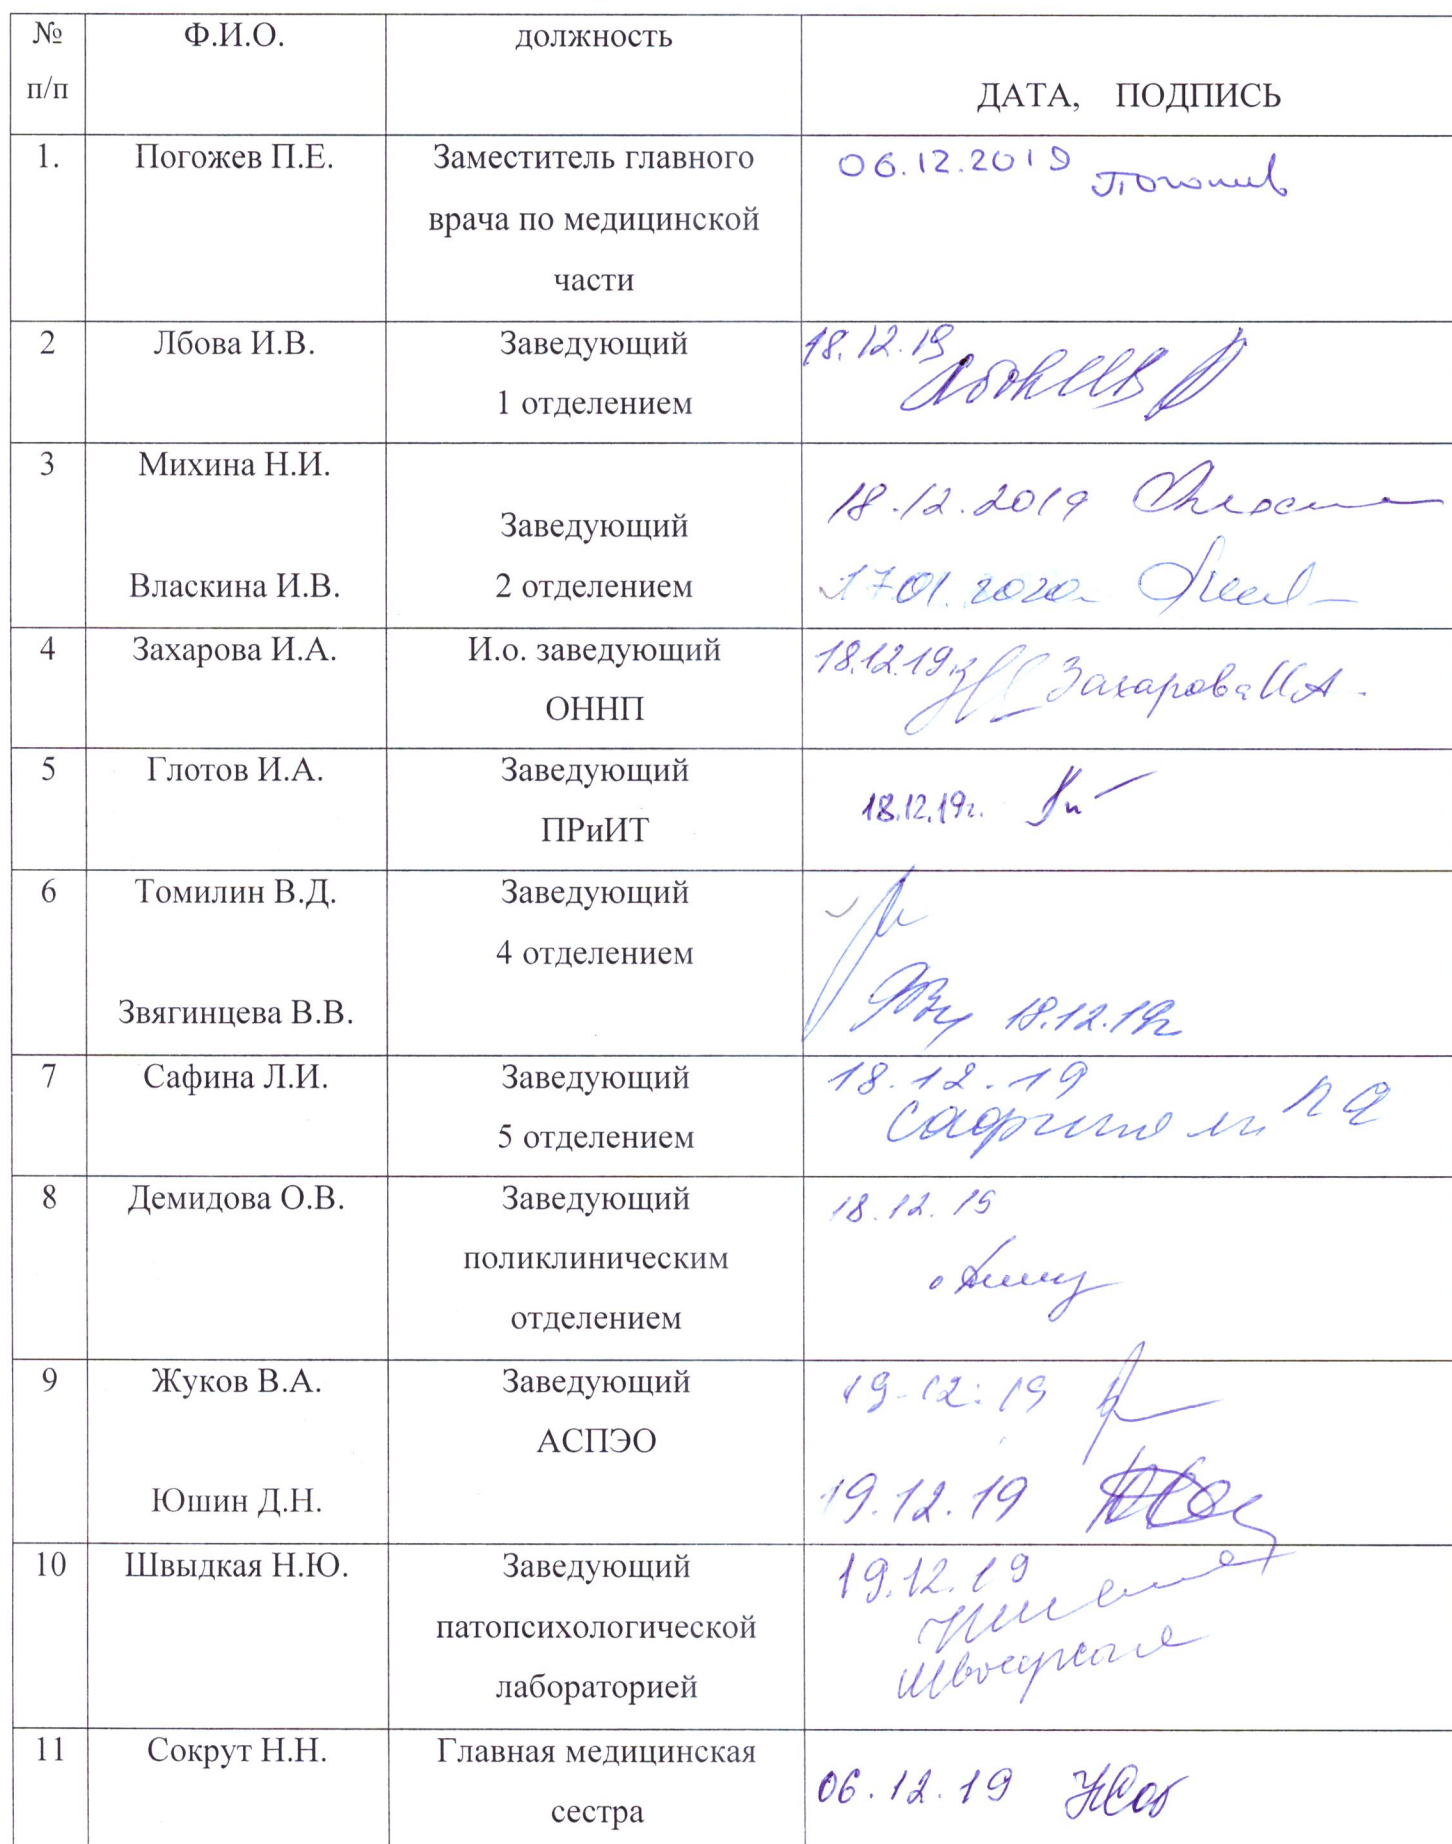 №
п/п
Ф.И.О.
должность
ДАТА, ПОДПИСЬ
1.
Погожев П.Е.
Заместитель главного
врача по медицинской
части
06.12.2019
2
Лбова И.В.
Заведующий
1 отделением
18.12.19
3
Михина Н.И.
Власкина И.В.
Заведующий
2 отделением
18.12.2019
17.01.2020
4
Захарова И.А.
И.о. заведующий
ОННП
18.12.19 Захарова И.А.
5
Глотов И.А.
Заведующий
ПРиИТ
18.12.19г.
6
Томилин В.Д.
Звягинцева В.В.
Заведующий
4 отделением
18.12.19г
7
Сафина Л.И.
Заведующий
5 отделением
18.12.19
Сафина
8
Демидова О.В.
Заведующий
поликлиническим
отделением
18.12.19
9
Жуков В.А.
Юшин Д.Н.
Заведующий
АСПЭО
19.12.19
19.12.19
10
Швыдкая Н.Ю.
Заведующий
патопсихологической
лабораторией
19.12.19
Швыдкая
11
Сокрут Н.Н.
Главная медицинская
сестра
06.12.19